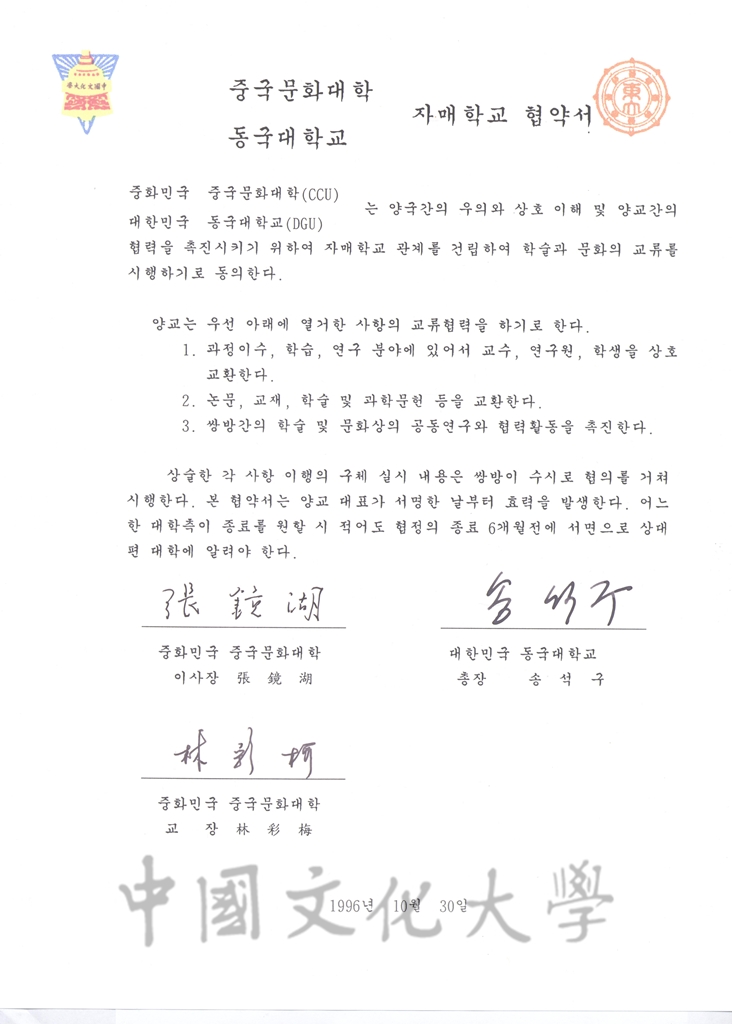 中國文化大學
중국문화대학
동국대학교
자매학교 협약서
東大
중화민국 중국문화대학(CCU)
대한민국 동국대학교(DGU)
는 양국간의 우의와 상호 이해 및 양교간의
협력을 촉진시키기 위하여 자매학교 관계를 건립하여 학술과 문화의 교류를
시행하기로 동의한다.
양교는 우선 아래에 열거한 사항의 교류협력을 하기로 한다.
1. 과정이수, 학습, 연구 분야에 있어서 교수, 연구원, 학생을 상호
교환한다.
2. 논문, 교재, 학술 및 과학문헌 등을 교환한다.
3. 쌍방간의 학술 및 문화상의 공동연구와 협력활동을 촉진한다.
상술한 각 사항 이행의 구체 실시 내용은 쌍방이 수시로 협의를 거쳐
시행한다. 본 협약서는 양교 대표가 서명한 날부터 효력을 발생한다. 어느
한 대학측이 종료를 원할 시 적어도 협정의 종료 6개월전에 서면으로 상대
편 대학에 알려야 한다.
張鏡湖
송석구
중화민국 중국문화대학
이사장 張 鏡 湖
대한민국 동국대학교
총장 송 석 구
林彩梅
중화민국 중국문화대학
교 장 林 彩 梅
1996년 10월 30일
中國文化大學